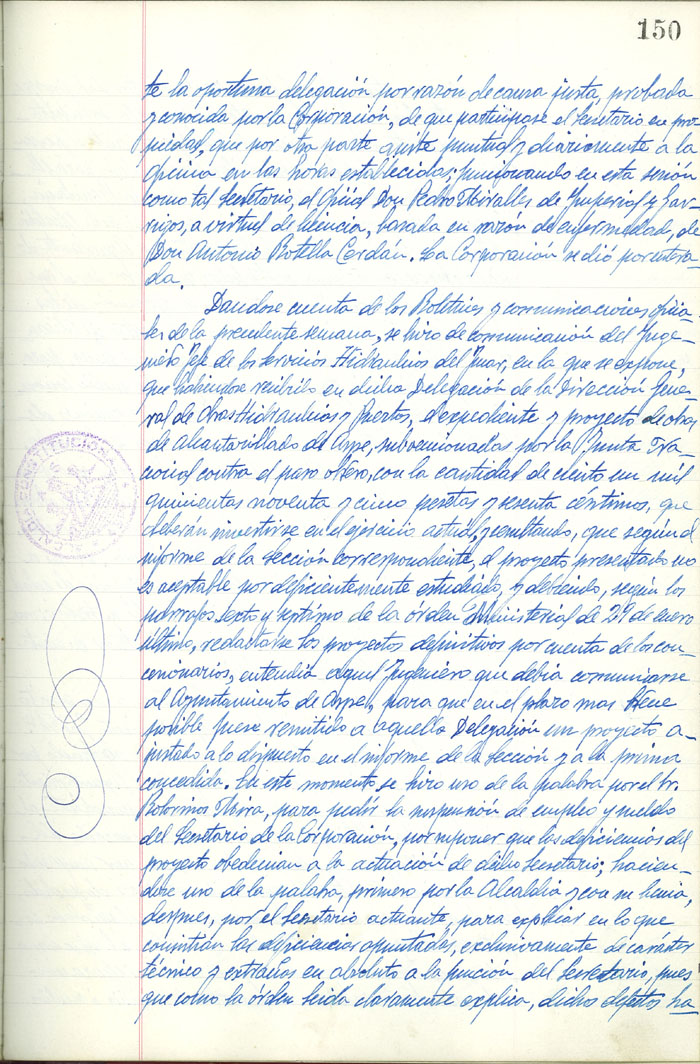 150
te la oportuna delegación por razón de causa justa, probada
y conocida por la Corporación, de que participase el Secretario en pro-
piedad, que por otra parte asiste puntual y diariamente a la
oficina en las horas establecidas; funcionando en esta sesión
como tal Secretario, el Oficial Don Pedro Miralles de Imperial y Gar-
rigos, a virtud de licencia, basada en razón de enfermedad, de
Don Antonio Botella Cerdán. La Corporación se dió por entera-
da.
Dandose cuenta de los Boletines y comunicaciones oficia-
les de la precedente semana, se hizo de comunicación del Inge-
niero Jefe de los Servicios Hidraulicos del Jucar, en la que se expone,
que habiendose recibido en dicha Delegación de la Dirección Gene-
ral de Obras Hidraulicas y Puertos, el expediente y proyecto de obras
de Alcantarillado de Aspe, subvencionadas por la Junta Na-
cional contra el paro obrero, con la cantidad de ciento un mil
quinientas noventa y cinco pesetas y sesenta céntimos, que
deberán invertirse en el ejercicio actual, y resultando, que según el
informe de la Sección correspondiente, el proyecto presentado no
es aceptable por deficientemente estudiado, y debiendo, según los
párrafos sexto y septimo de la órden Ministerial de 29 de enero
último, redactarse los proyectos definitivos por cuenta de los con-
cesionarios, entendia aquel Ingeniero que debia comunicarse
al Ayuntamiento de Aspe, para que en el plazo mas breve
posible fuese remitido a aquella Delegación un proyecto a-
justado a lo dispuesto en el informe de la Sección y a la prima
concedida. En este momento se hizo uso de la palabra por el Sr.
para pedir la suspensión de empleo y sueldo
del Secretario de la Corporación, por suponer que las deficiencias del
proyecto obedecian a la actuación de dicho Secretario; hacien-
dose uso de la palabra, primero por la Alcaldía y con su licencia,
despues, por el Secretario actuante, para explicar en lo que
consistian las deficiencias apuntadas, exclusivamente de carácter
técnico y extrañas en absoluto a la función del Secretario, pues
que como la órden leida claramente explica, dichos defectos ha